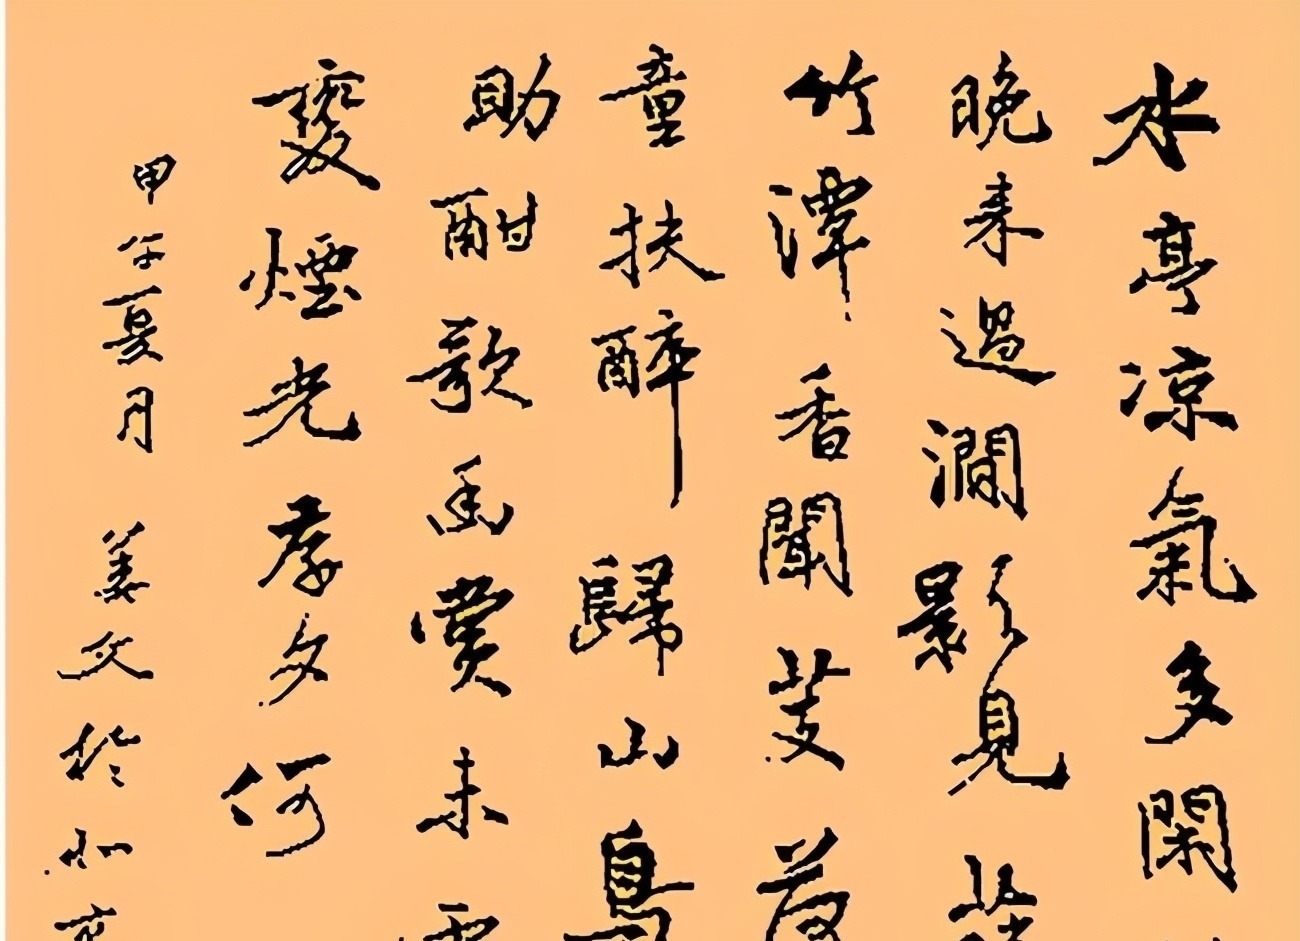 水亭凉氣多閑
晚来過澗影見
竹潭香聞芰荷
童扶醉歸山鳥
助酣歌幽賞未
變煙光夕何
甲午夏月 姜文於北京